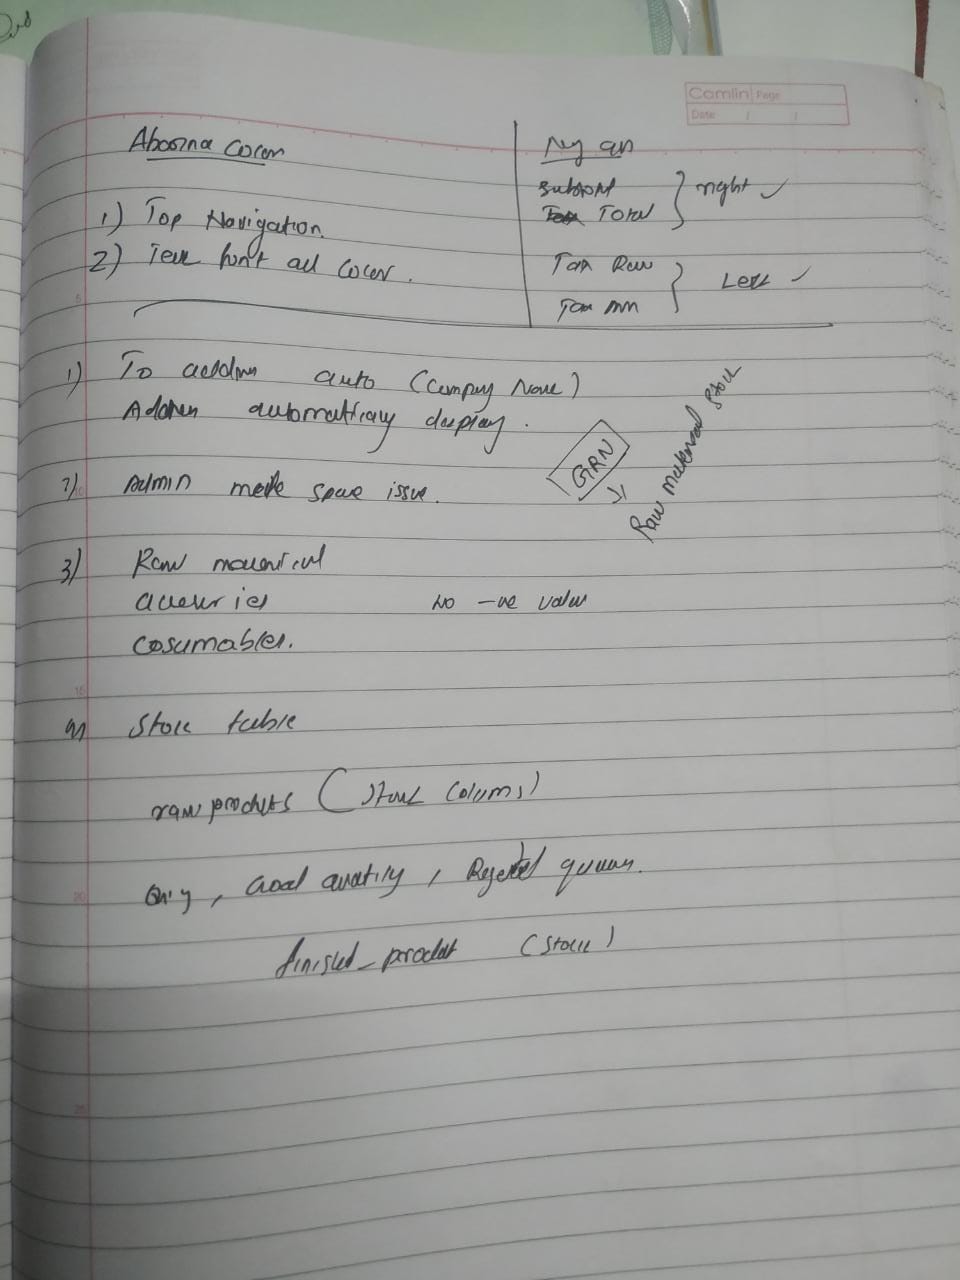 Camlin Page
Date / /
Aboorna Color
1) Top Navigation.
2) Text font all Color.
subtotal
Total } right ✓
Tax Raw
Tax } Left ✓
1) To address auto (Company Name)
Address automatically display.
2) Admin made space issue.
GRN
Raw material stock
3) Raw material
accesories No -ve value
cosumables.
4) Stock table
raw products (Stock Colums)
Qny, Good quatity, Rejected
finished_product (Stock)